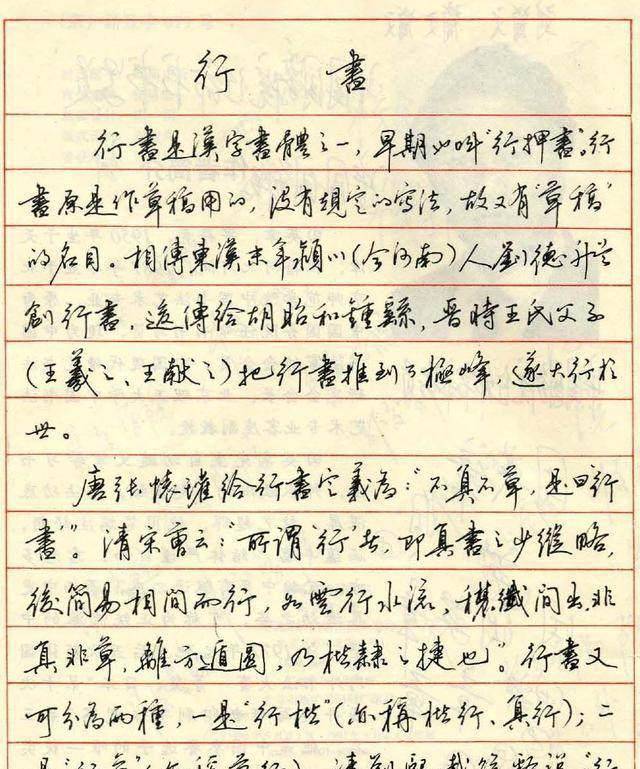 行書
行書是漢字書體之一，早期也叫“行押書”。行
書原是作草稿用的，沒有規定的寫法，故又有“草稿”
的名目。相傳東漢末年潁川（今河南）人劉德升始
創行書，遂傳給胡昭和鍾繇，晉時王氏父子
（王羲之、王献之）把行書推到了極峰，遂大行於
世。
唐張懷瓘給行書定義為：“不真不草，是曰‘行
書’”。清宋曹云：“所謂行者，即真書之少縱略，
後簡易相間而行，如雲行水流，穠纖間出，非
真非草，離方遁圓，乃楷隸之捷也”。行書又
可分為兩種，一是“行楷”（亦稱楷行、真行）；二